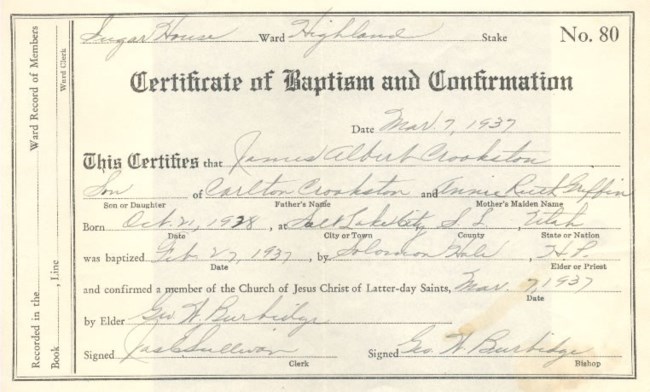 Sugar House Ward Highland Stake No. 80
Certificate of Baptism and Confirmation
Date Mar. 7, 1937
This Certifies that James Albert Crookston
Son of Carlton Crookston and Annie Ruth Griffin
Son or Daughter Father's Name Mother's Maiden Name
Born Oct. 21, 1928, at Salt Lake City, S. L., Utah
Date City or Town County State or Nation
was baptized Feb. 27, 1937, by Solomon Hale, H.P.
Date Elder or Priest
and confirmed a member of the Church of Jesus Christ of Latter-day Saints, Mar. 7, 1937
Date
by Elder Geo W. Burbidge
Signed Jas Sullivan Signed Geo W. Burbidge
Clerk Bishop
Recorded in the Ward Record of Members
Book , Line Ward Clerk